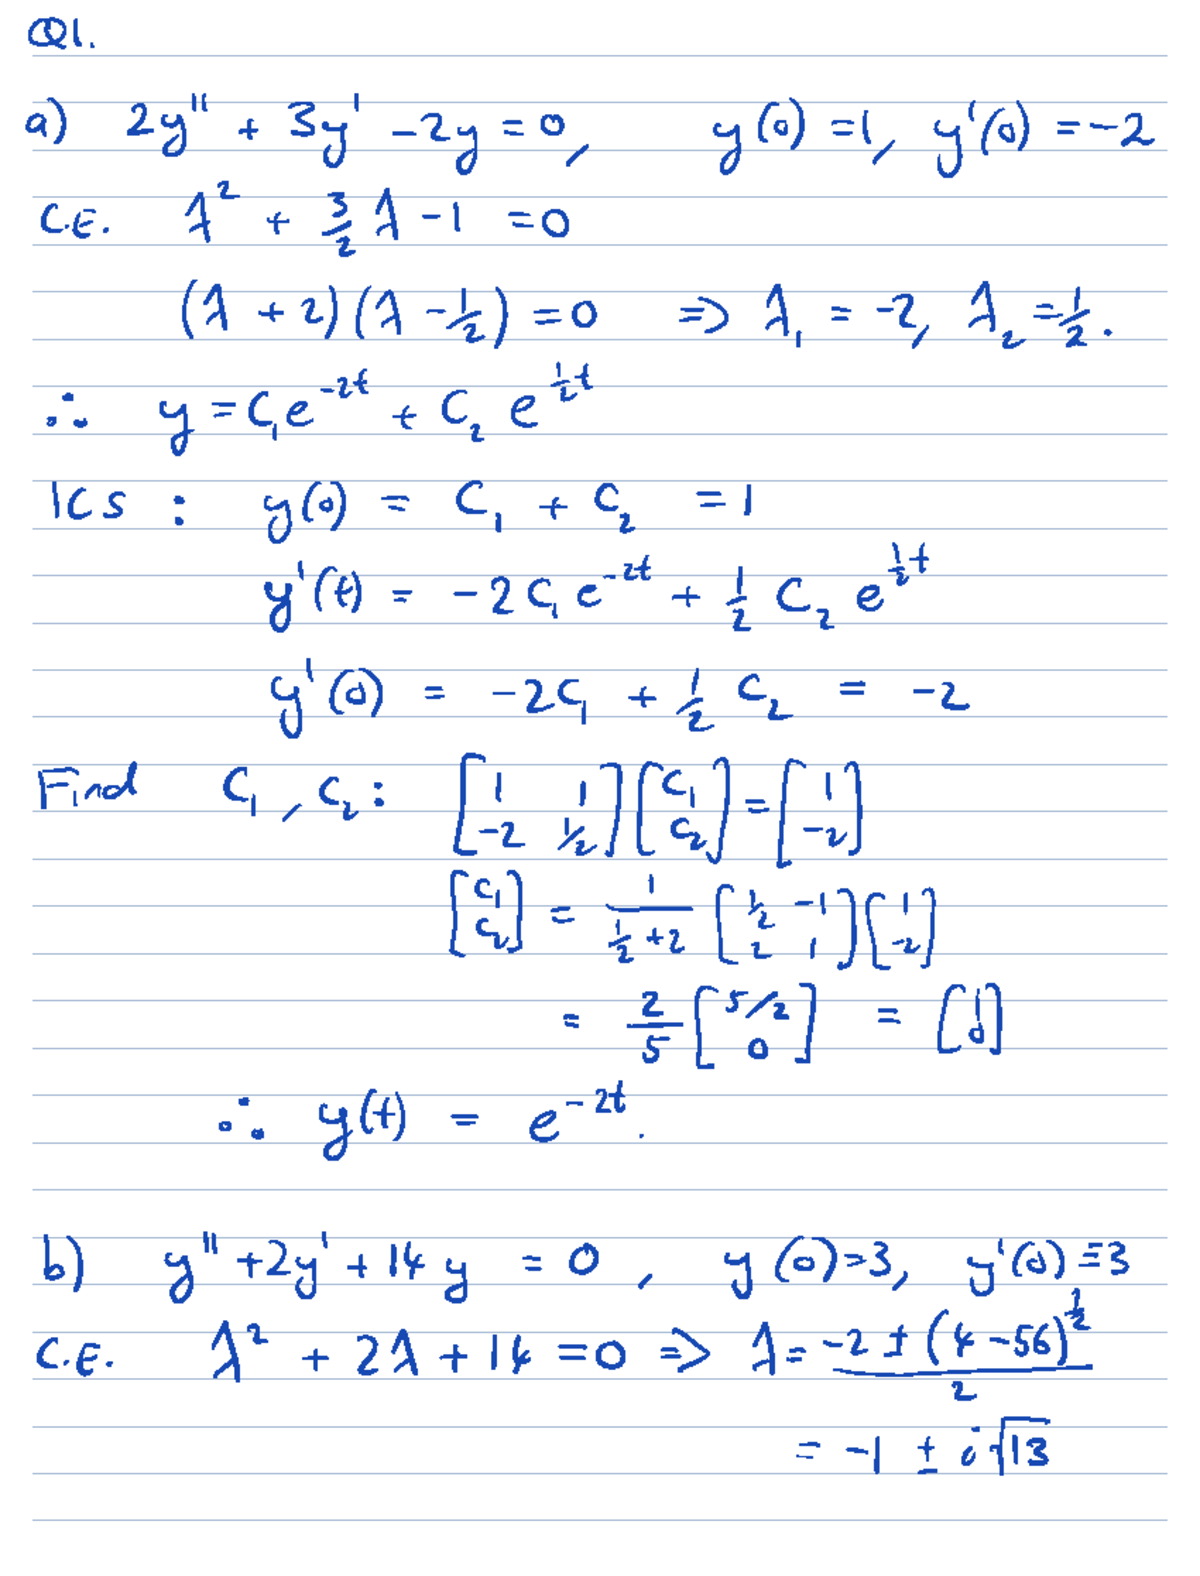 Q1.
a) 2y'' + 3y' - 2y = 0, y(0) = 1, y'(0) = -2
C.E. λ² + 3/2 λ - 1 = 0
(λ + 2)(λ - 1/2) = 0 => λ₁ = -2, λ₂ = 1/2.
∴ y = C₁e^(-2t) + C₂ e^(1/2 t)
ICs : y(0) = C₁ + C₂ = 1
y'(t) = -2C₁ e^(-2t) + 1/2 C₂ e^(1/2 t)
y'(0) = -2C₁ + 1/2 C₂ = -2
Find C₁, C₂: [1 1; -2 1/2][C₁; C₂] = [1; -2]
[C₁; C₂] = 1/(1/2 + 2) [1/2 -1; 2 1][1; -2]
= 2/5 [5/2; 0] = [1; 0]
∴ y(t) = e^(-2t).
b) y'' + 2y' + 14y = 0, y(0) = 3, y'(0) = 3
C.E. λ² + 2λ + 14 = 0 => λ = (-2 ± (4 - 56)^(1/2))/2
= -1 ± i√13